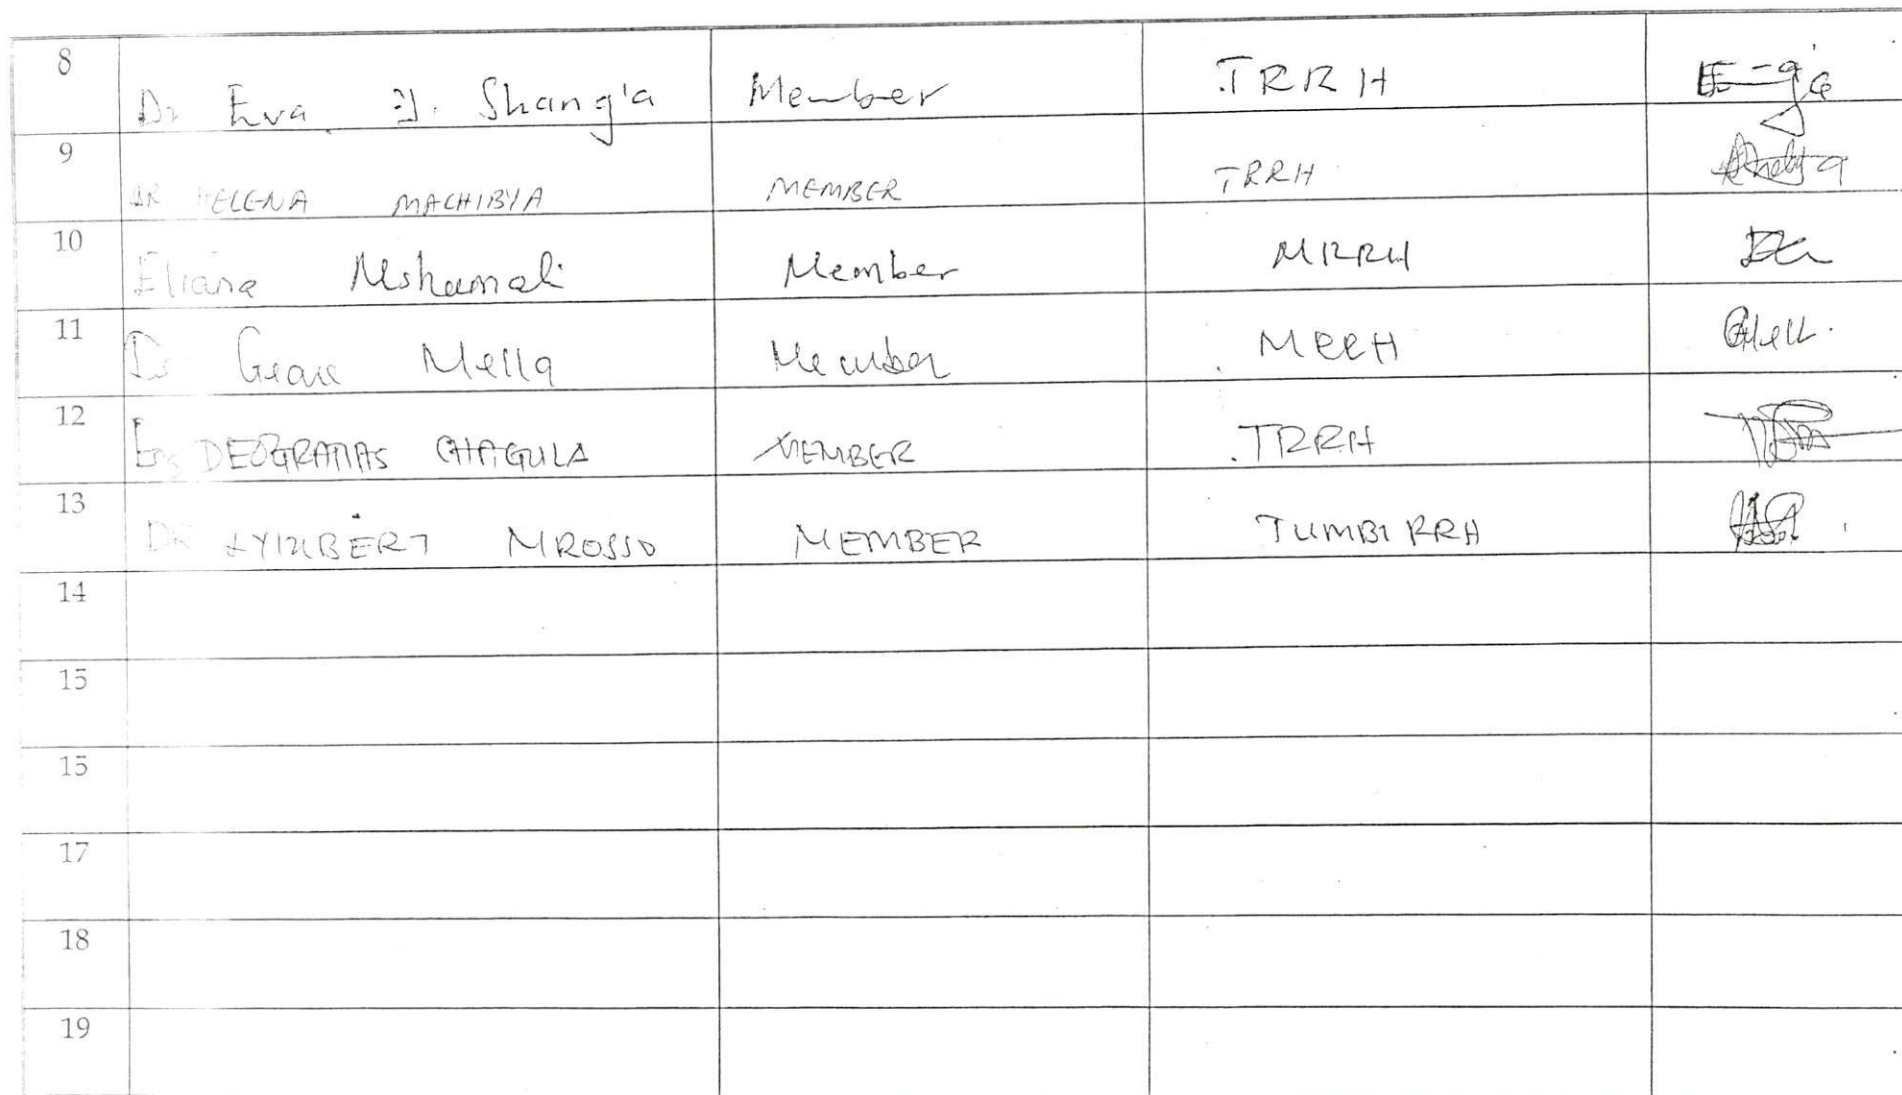 8 Dr Eva J. Shang'a Member TRRH
9 DR HELENA MACHIBYA MEMBER TRRH
10 Eliana Mshamali Member MRRH
11 Dr Mella Member MRRH
12 Eng DEOGRATIAS CHAGULA MEMBER TRRH
13 DR MROSSO MEMBER TUMBI RRH
14
15
15
17
18
19